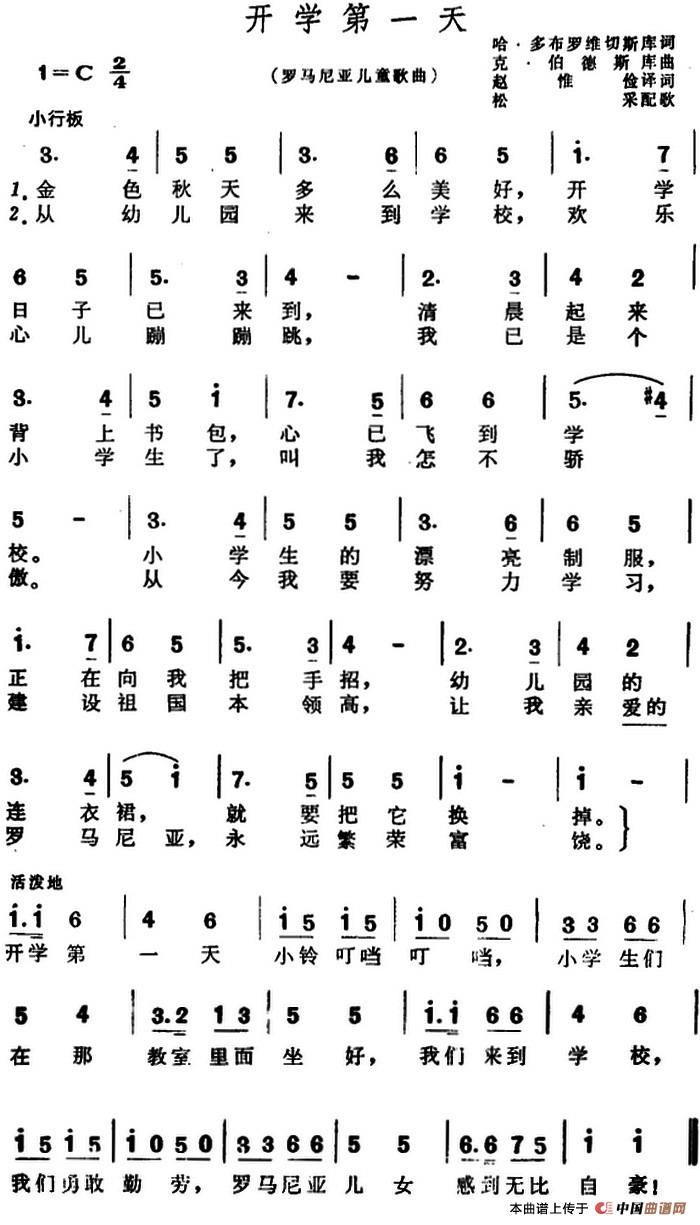 开学第一天
哈·多布罗维切斯库词
1=C 2/4
(罗马尼亚儿童歌曲)
克·伯德斯库曲
赵惟俭译词
松采配歌
小行板
3. 4 | 5 5 | 3. 6 | 6 5 | i. 7 |
1.金色秋天多么美好,开学
2.从幼儿园来到学校,欢乐
6 5 | 5. 3 | 4 - | 2. 3 | 4 2 |
日子已来到,清晨起来
心儿蹦蹦跳,我已是个
3. 4 | 5 i | 7. 5 | 6 6 | 5. #4 |
背上书包,心已飞到学
小学生了,叫我怎不骄
5 - | 3. 4 | 5 5 | 3. 6 | 6 5 |
校。小学生的漂亮制服,
傲。从今我要努力学习,
i. 7 | 6 5 | 5. 3 | 4 - | 2. 3 | 4 2 |
正在向我把手招,幼儿园的
建设祖国本领高,让我亲爱的
3. 4 | 5 i | 7. 5 | 5 5 | i - | i - |
连衣裙,就要把它换掉。
罗马尼亚,永远繁荣富饶。
活泼地
i.i 6 | 4 6 | i5 i5 | i0 50 | 33 66 |
开学第一天小铃叮当叮当,小学生们
5 4 | 3.2 13 | 5 5 | i.i 66 | 4 6 |
在那教室里面坐好,我们来到学校,
i5 i5 | i0 50 | 33 66 | 5 5 | 6.6 75 | i i ‖
我们勇敢勤劳,罗马尼亚儿女感到无比自豪!
本曲谱上传于 中国曲谱网